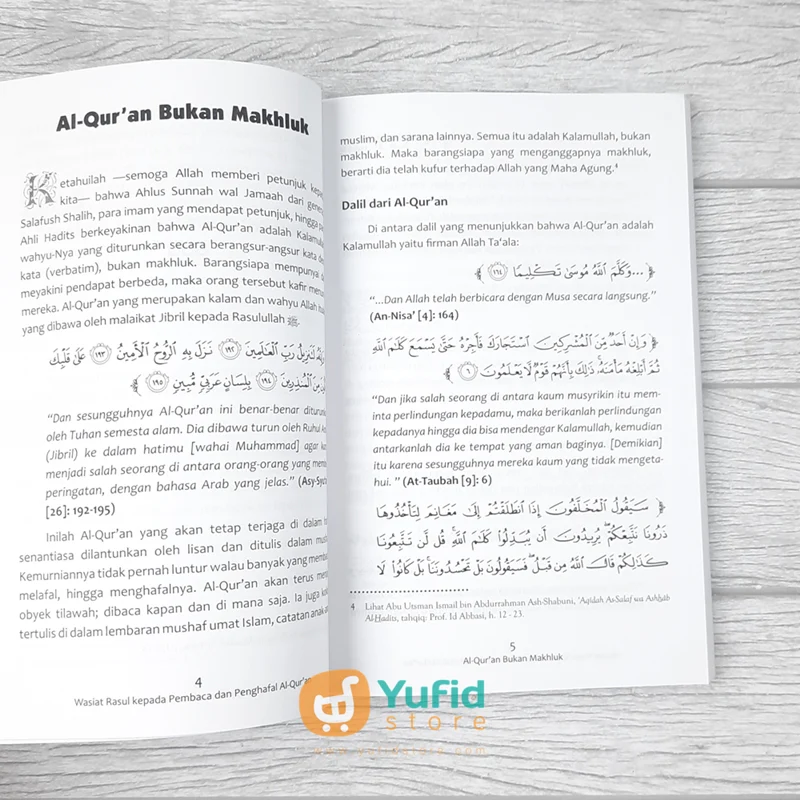 Al-Qur'an Bukan Makhluk
Ketahuilah —semoga Allah memberi petunjuk
kita— bahwa Ahlus Sunnah wal Jamaah dari
Salafush Shalih, para imam yang mendapat petunjuk, hingga
Ahli Hadits berkeyakinan bahwa Al-Qur'an adalah
wahyu-Nya yang diturunkan secara berangsur-angsur kata
kata (verbatim), bukan makhluk. Barangsiapa mempunyai
meyakini pendapat berbeda, maka orang tersebut kafir
mereka. Al-Qur'an yang merupakan kalam dan wahyu Allah
yang dibawa oleh malaikat Jibril kepada Rasulullah ﷺ.
لَتَنْزِيلُ رَبِّ الْعَالَمِينَ ﴿١٩٢﴾ نَزَلَ بِهِ الرُّوحُ الْأَمِينُ ﴿١٩٣﴾ عَلَى قَلْبِكَ
مِنَ الْمُنْذِرِينَ ﴿١٩٤﴾ بِلِسَانٍ عَرَبِيٍّ مُبِينٍ ﴿١٩٥﴾
"Dan sesungguhnya Al-Qur'an ini benar-benar
oleh Tuhan semesta alam. Dia dibawa turun oleh Ruhul
(Jibril) ke dalam hatimu [wahai Muhammad] agar
menjadi salah seorang di antara orang-orang yang
peringatan, dengan bahasa Arab yang jelas."
[26]: 192-195)
Inilah Al-Qur'an yang akan tetap terjaga di dalam
senantiasa dilantunkan oleh lisan dan ditulis dalam
Kemurniannya tidak pernah luntur walau banyak yang
melafal, hingga menghafalnya. Al-Qur'an akan terus
obyek tilawah; dibaca kapan dan di mana saja. Ia juga
tertulis di dalam lembaran mushaf umat Islam, catatan
4
Wasiat Rasul kepada Pembaca dan Penghafal Al-Qur'an
muslim, dan sarana lainnya. Semua itu adalah Kalamullah, bukan
makhluk. Maka barangsiapa yang menganggapnya makhluk,
berarti dia telah kufur terhadap Allah yang Maha Agung.⁴
Dalil dari Al-Qur'an
Di antara dalil yang menunjukkan bahwa Al-Qur'an adalah
Kalamullah yaitu firman Allah Ta'ala:
﴿ ...وَكَلَّمَ اللَّهُ مُوسَى تَكْلِيمًا ﴿١٦٤﴾ ﴾
"...Dan Allah telah berbicara dengan Musa secara langsung."
(An-Nisa' [4]: 164)
﴿ وَإِنْ أَحَدٌ مِّنَ الْمُشْرِكِينَ اسْتَجَارَكَ فَأَجِرْهُ حَتَّىٰ يَسْمَعَ كَلَامَ اللَّهِ
ثُمَّ أَبْلِغْهُ مَأْمَنَهُ ۚ ذَٰلِكَ بِأَنَّهُمْ قَوْمٌ لَّا يَعْلَمُونَ ﴿٦﴾ ﴾
"Dan jika salah seorang di antara kaum musyrikin itu me-
minta perlindungan kepadamu, maka berikanlah perlindungan
kepadanya hingga dia bisa mendengar Kalamullah, kemudian
antarkanlah dia ke tempat yang aman baginya. [Demikian]
itu karena sesungguhnya mereka kaum yang tidak mengeta-
hui. " (At-Taubah [9]: 6)
﴿ سَيَقُولُ الْمُخَلَّفُونَ إِذَا انْطَلَقْتُمْ إِلَىٰ مَغَانِمَ لِتَأْخُذُوهَا
ذَرُونَا نَتَّبِعْكُمْ ۖ يُرِيدُونَ أَنْ يُبَدِّلُوا كَلَامَ اللَّهِ ۚ قُلْ لَنْ تَتَّبِعُونَا
كَذَٰلِكُمْ قَالَ اللَّهُ مِنْ قَبْلُ ۖ فَسَيَقُولُونَ بَلْ تَحْسُدُونَنَا ۚ بَلْ كَانُوا لَا
4 Lihat Abu Utsman Ismail bin Abdurrahman Ash-Shabuni, 'Aqidah As-Salaf wa Ashhâb
Al-Hadits, tahqiq: Prof. Id Abbasi, h. 12 - 23.
5
Al-Qur'an Bukan Makhluk
Yufid
store
www.yufidstore.com